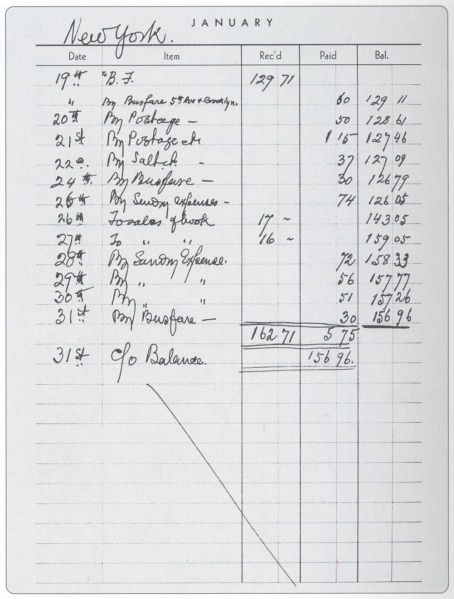 JANUARY
New York.
Date Item Rec'd Paid Bal.
19th To B.F. 129 71
" By Busfare 5th Ave & Brooklyn. 60 129 11
20th By Postage — 50 128 61
21st By Postage etc 1 15 127 46
22nd By - 37 127 09
24th By Busfare — 30 126 79
25th By Sundry expenses - 74 126 05
26th To sales of book 17 ~ 143 05
27th To " " 16 ~ 159 05
28th By Sundry Expense. 72 158 33
29th By " " 56 157 77
30th By " " 51 157 26
31st By Busfare — 30 156 96
162 71 5 75
31st c/o Balance. 156 96.